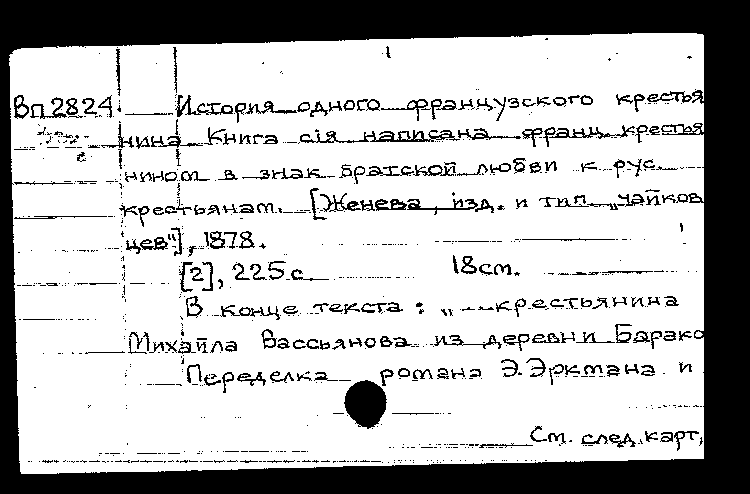 Вп 2824 История одного французского крестья
нина Книга сiя написана франц. крестья
нином в знак братской любви к рус.
крестьянам. [Женева, изд. и тип. „чайков
цев"], 1878.
[2], 225 с. 18 см.
В конце текста: „...крестьянина
Михайла Вассьянова из деревни Барако
Переделка романа Э. Эркмана и
См. след. карт,